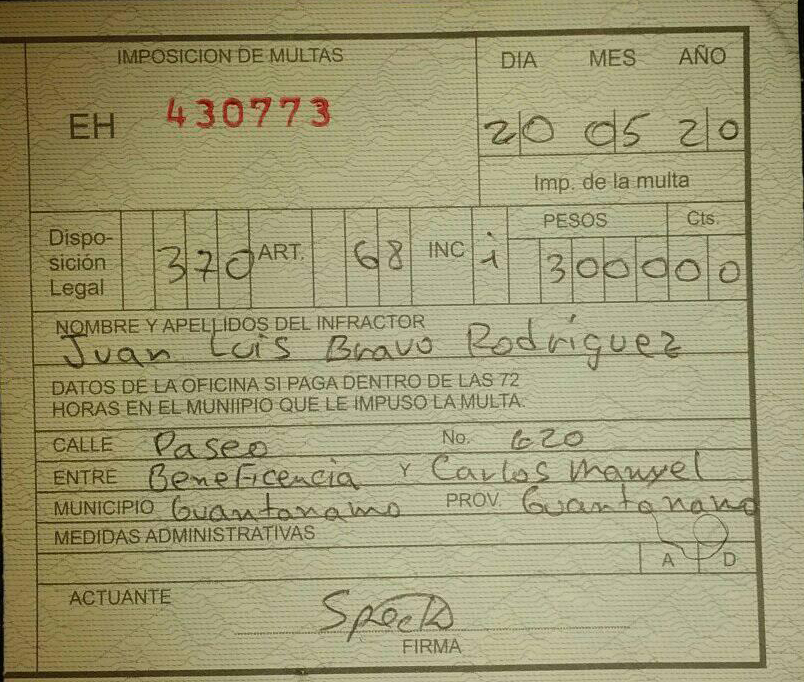 IMPOSICION DE MULTAS
DIA MES AÑO
EH 430773
20 05 20
Imp. de la multa
Dispo-
sición
Legal
370 ART. 68 INC i
PESOS Cts.
3000 00
NOMBRE Y APELLIDOS DEL INFRACTOR
Juan Luis Bravo Rodríguez
DATOS DE LA OFICINA SI PAGA DENTRO DE LAS 72
HORAS EN EL MUNIIPIO QUE LE IMPUSO LA MULTA.
CALLE Paseo No. 620
ENTRE Beneficencia Y Carlos Manuel
MUNICIPIO Guantanamo PROV. Guantanamo
MEDIDAS ADMINISTRATIVAS
A D
ACTUANTE
FIRMA